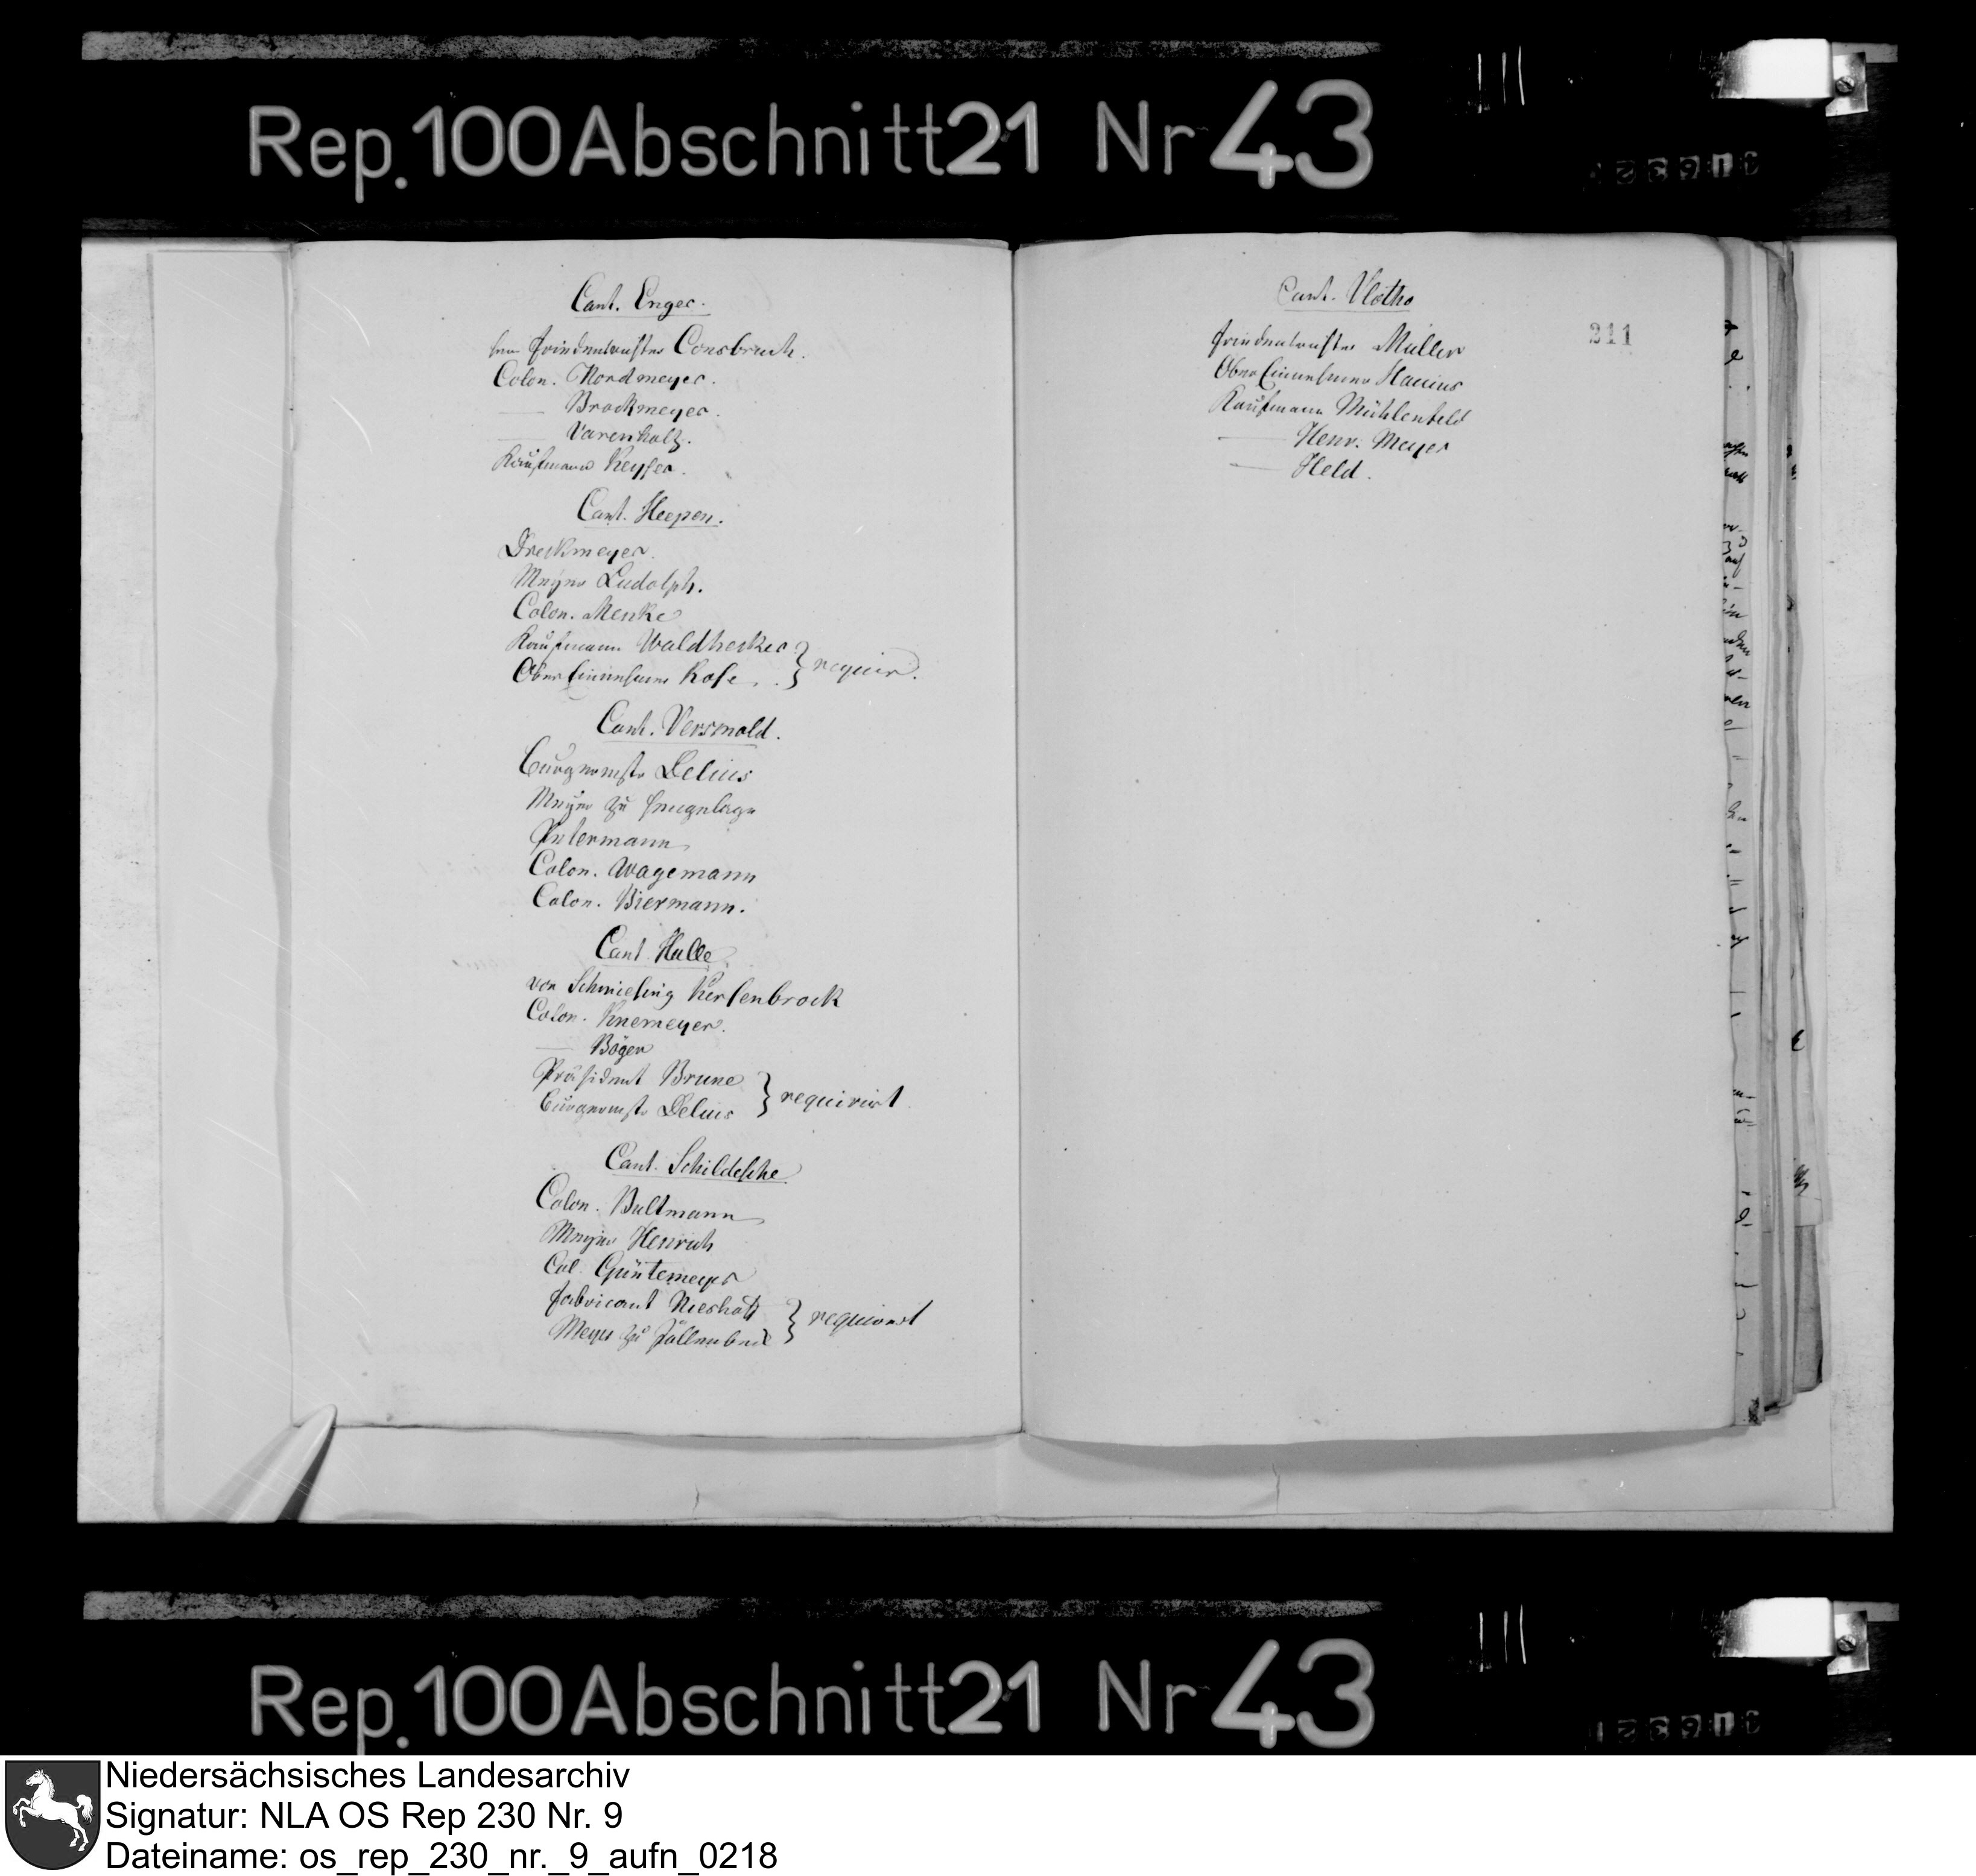 Rep. 100 Abschnitt 21 Nr 43
Cant. Enger.
Herr Friedensrichter Consbruch.
Colon. Nordmeyer.
— Brockmeyer.
— Varenholz.
Kaufmann Keyser.
Cant. Heepen.
Dreckmeyer.
Meyer Ludolph.
Colon. Menke
Kaufmann Waldhecker } requir.
Ober Einnehmer Rose
Cant. Versmold.
Burgermstr Delius
Meyer zu
Petermann
Colon. Wagemann
Colon. Biermann.
Cant Halle
von Schmiesing Kersenbrock
Colon. Knemeyer.
— Böger
Präsident Brune } requirirt
Burgermstr Delius
Cant. Schildesche
Colon. Bultmann
Meyer Henrich
Col. Güntemeyer
Fabricant } requirirt
Meyer zu Jöllenbeck
Cant. Vlotho
211
Friedensrichter Müller
Ober Einnehmer
Kaufmann Mühlenfeld
— Henr. Meyer
— Held.
Rep. 100 Abschnitt 21 Nr 43
Niedersächsisches Landesarchiv
Signatur: NLA OS Rep 230 Nr. 9
Dateiname: os_rep_230_nr._9_aufn_0218